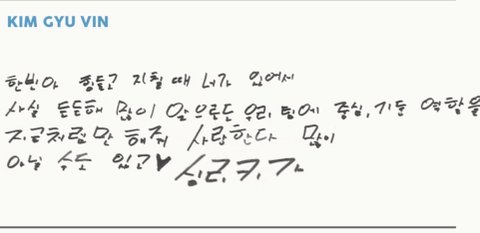 KIM GYU VIN
한빈아 힘들고 지칠 때 너가 있어서
사실 든든해 많이 앞으로도 우리 팀에 중심, 기둥 역할을
지금처럼만 해줘 사랑한다 많이
아닐 수도 있고♥ 싱.긋.키.가